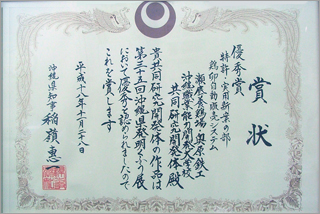 賞状
優秀賞
特許・実用新案の部
鶏卵自動販売システム
瀬底養鶏場・奥原鉄工
沖縄職業能力開発大学校
共同研究開発体 殿
貴共同研究開発体の作品は
第三十五回沖縄県発明くふう展
において優秀と認められましたので
これを賞します
平成十八年十一月二十八日
沖縄県知事 稲嶺惠一